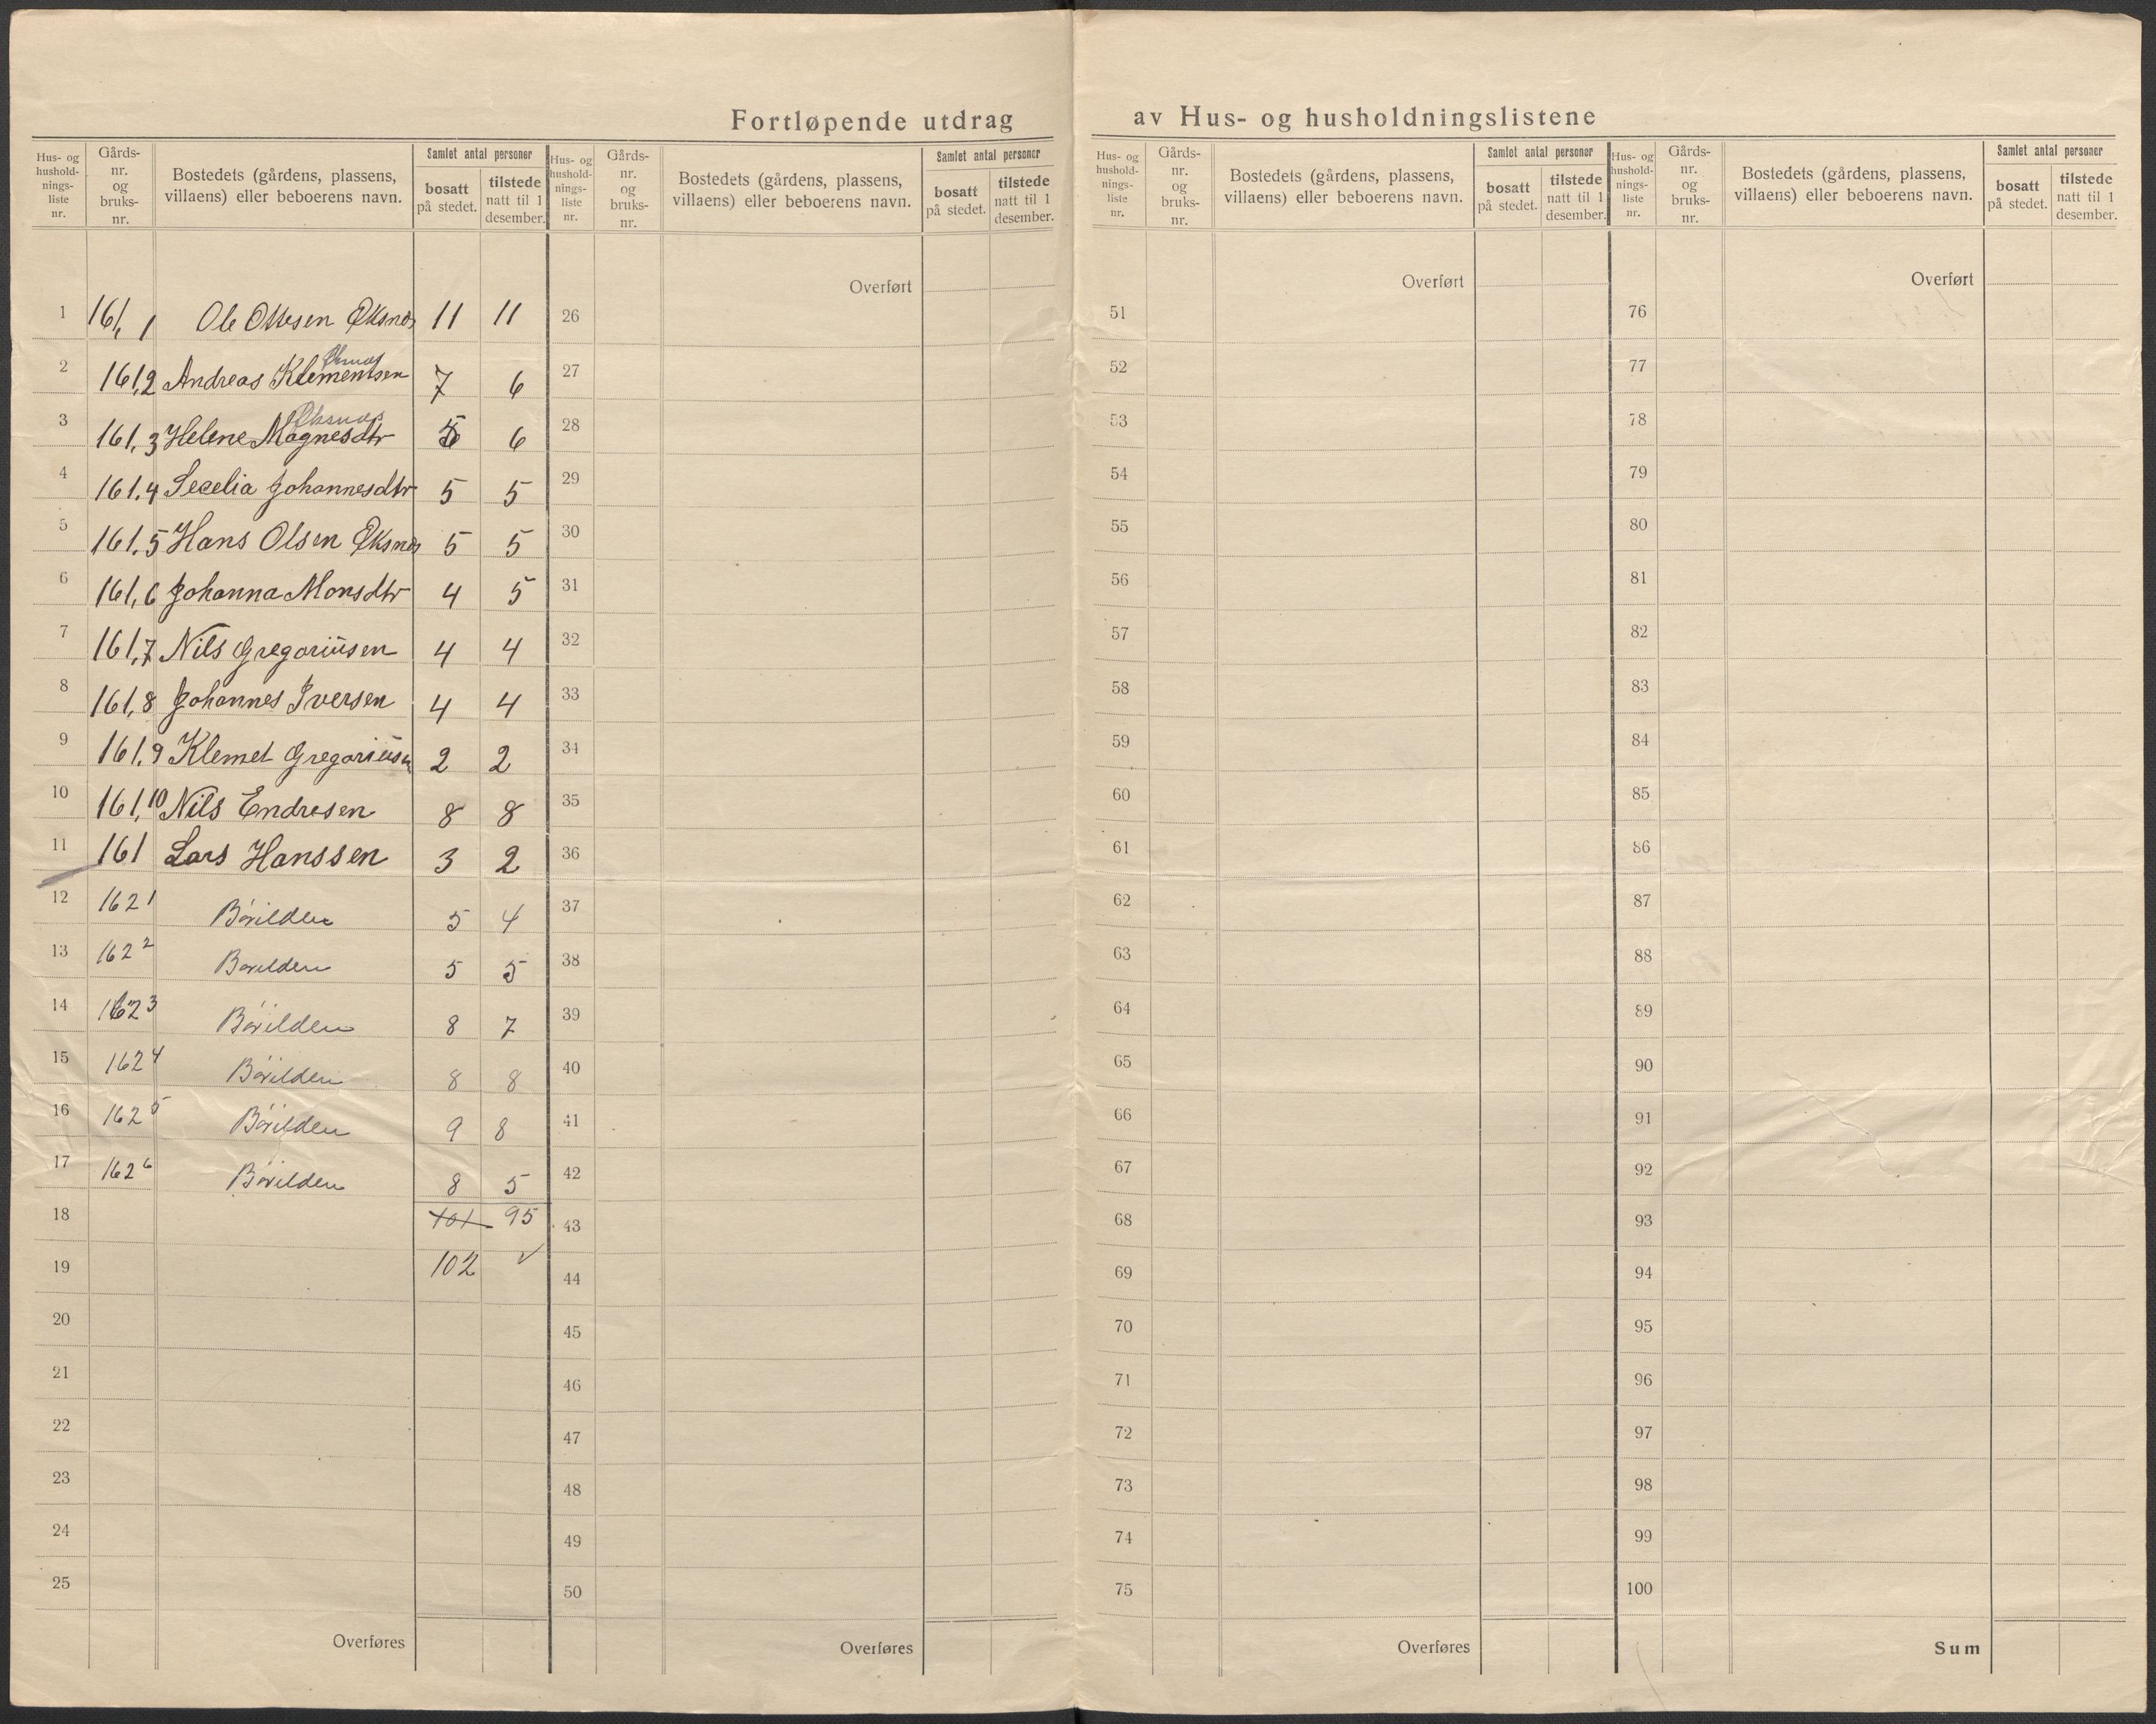 Fortløpende utdrag av Hus- og husholdningslistene
Hus- og hushold-nings-liste nr. Gårds-nr. og bruks-nr. Bostedets (gårdens, plassens, villaens) eller beboerens navn. Samlet antal personer bosatt på stedet. tilstede natt til 1 desember.
Hus- og hushold-nings-liste nr. Gårds-nr. og bruks-nr. Bostedets (gårdens, plassens, villaens) eller beboerens navn. Samlet antal personer bosatt på stedet. tilstede natt til 1 desember.
Hus- og hushold-nings-liste nr. Gårds-nr. og bruks-nr. Bostedets (gårdens, plassens, villaens) eller beboerens navn. Samlet antal personer bosatt på stedet. tilstede natt til 1 desember.
Hus- og hushold-nings-liste nr. Gårds-nr. og bruks-nr. Bostedets (gårdens, plassens, villaens) eller beboerens navn. Samlet antal personer bosatt på stedet. tilstede natt til 1 desember.
Overført Overført Overført
1 161, 1 Ole Ottesen Øksnes 11 11 26 51 76
Øksnes
2 161,2 Andreas Klementsen 7 6 27 52 77
Øksnes
3 161,3 Helene Magnesdtr 6 28 53 78
4 161,4 Secelia Johannesdtr 5 5 29 54 79
5 161,5 Hans Olsen Øksnes 5 5 30 55 80
6 161,6 Johanna Monsdtr 4 5 31 56 81
7 161,7 Nils Gregoriusen 4 4 32 57 82
8 161,8 Johannes Iversen 4 4 33 58 83
9 161,9 Klemet Gregoriusen 2 2 34 59 84
10 161,10 Nils Endresen 8 8 35 60 85
11 161 Lars Hanssen 3 2 36 61 86
12 162 1 Børilden 5 4 37 62 87
13 162 2 Børilden 5 5 38 63 88
14 162 3 Børilden 8 7 39 64 89
15 162 4 Børilden 8 8 40 65 90
16 162 5 Børilden 9 8 41 66 91
17 162 6 Børilden 8 5 42 67 92
18 101 95 43 68 93
19 102 ✓ 44 69 94
20 45 70 95
21 46 71 96
22 47 72 97
23 48 73 98
24 49 74 99
25 50 75 100
Overføres Overføres Overføres Sum